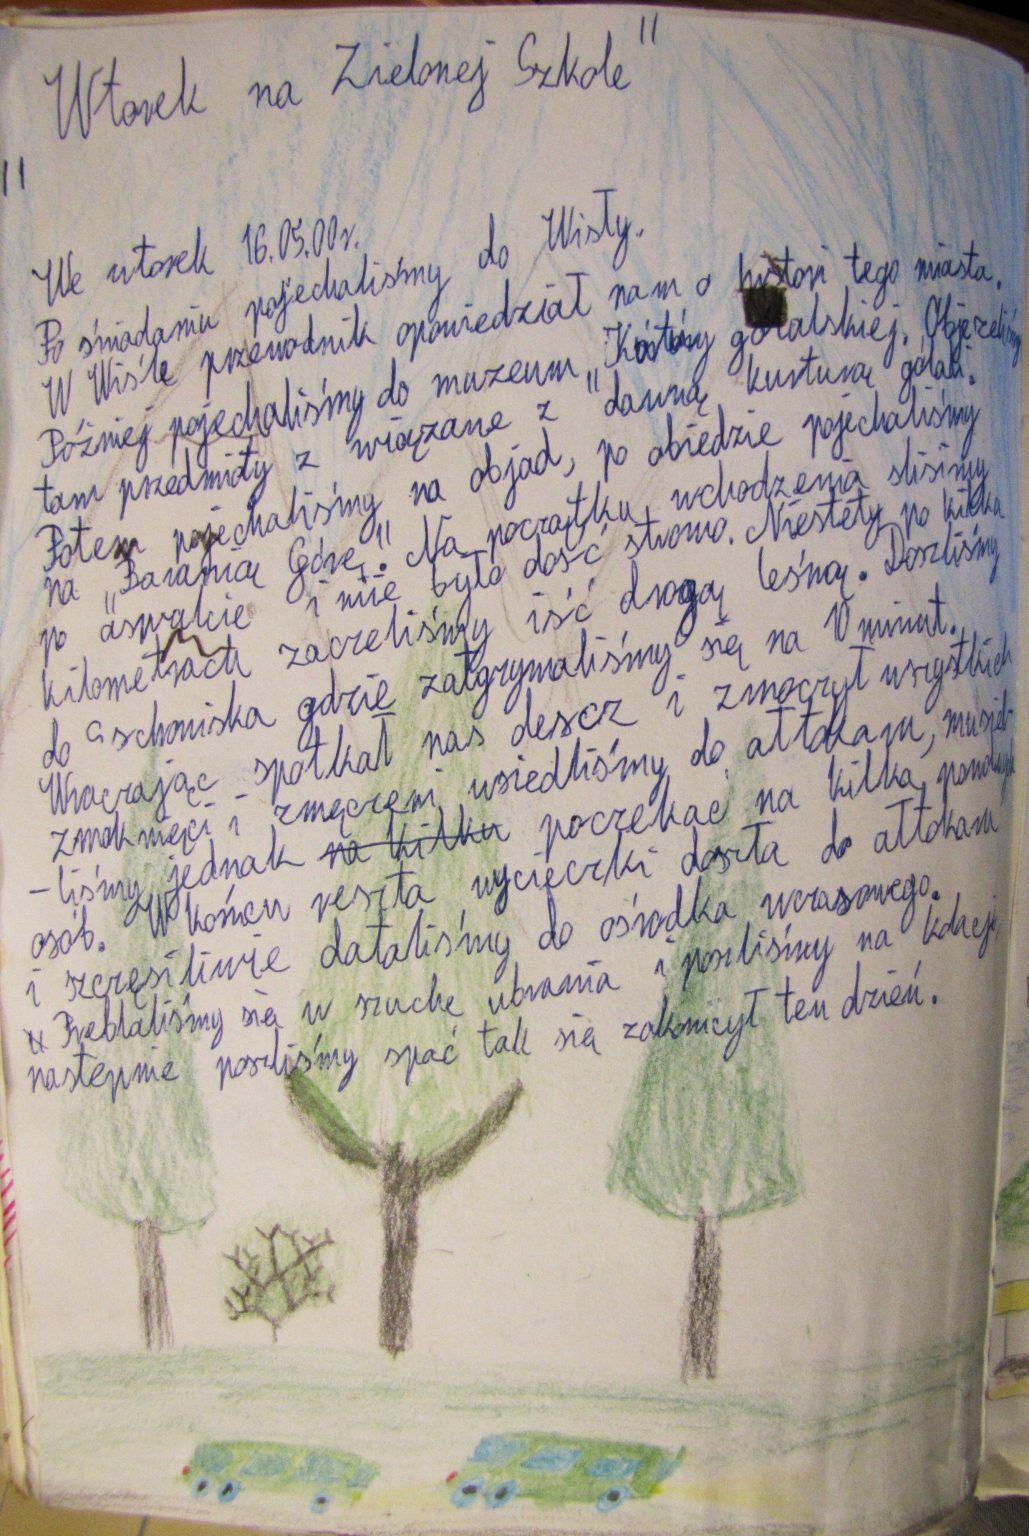 "Wtorek na Zielonej Szkole"
We wtorek 16.05.00r.
Po śniadaniu pojechaliśmy do Wisły.
W Wiśle przewodnik opowiedział nam o histori tego miasta.
Później pojechaliśmy do muzeum góralskiej. Objrzeliśmy
tam przedmioty z wiązane z "dawną kurturą górali.
Potem pojechaliśmy na objad, po obiedzie pojechaliśmy
na "Baranią Górę." Na początku wchodzenia sliśimy
po aswalcie i nie było dość stromo. Niestety po kilka
kilometrach zaczeliśmy iść drogą leśną. Doszliśmy
do schoniska gdzie zatgrymaliśmy się na 10 minut.
Wracrając spotkał nas descz i zmoczył wszystkich
zmoknięci i zmęczeni wsiedliśmy do attokaru, musie-
-liśmy jednak na kilku poczekać na kilka
osób. W końcu reszta wycieczki doszta do attokaru
i szczęsiliwie dataliśmy do ośrodka wczasowego.
Przeblaliśmy się w szuche ubrania i poszliśmy na kolacje
nastepnie poszliśmy spać tak się zakończył ten dzień.